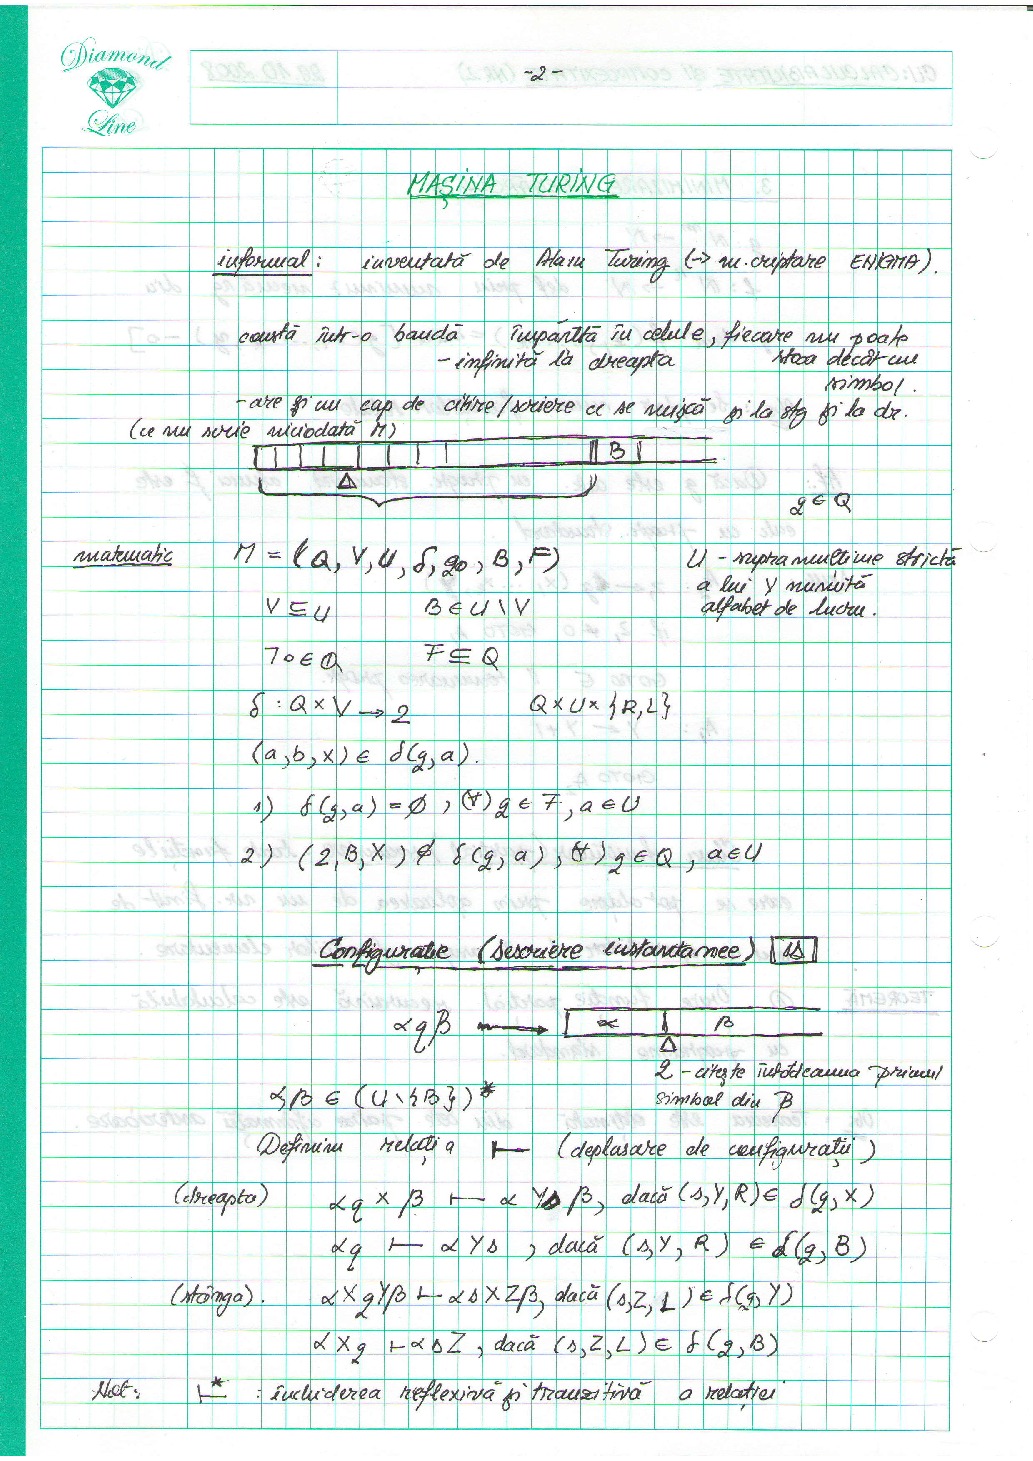 Diamond
Line
-2-
MAȘINA TURING
informal: inventată de Alan Turing (-> m. criptare ENIGMA).
constă într-o bandă împărțită în celule, fiecare nu poate
- infinită la dreapta stoca decât un
simbol.
- are și un cap de citire/scriere ce se mișcă și la stg și la dr.
(ce nu scrie niciodată M)
B
Δ
q ∈ Q
matematic M = (Q, V, U, δ, q0, B, F) U - supramulțime strictă
a lui V numită
alfabet de lucru.
V ⊆ U B ∈ U \ V
70 ∈ Q F ⊆ Q
δ : Q × V → 2 Q × U × {R, L}
(a, b, x) ∈ δ(q, a).
1) δ(q, a) = ∅, (∀) q ∈ F, a ∈ U
2) (2, B, X) ∉ δ(q, a), (∀) q ∈ Q, a ∈ U
Configurație (descriere instantanee) is
α q β → α β
Δ
2 - citește întotdeauna primul
simbol din β
α, β ∈ (U \ {B})*
Definim relația ⊢ (deplasare de configurații)
(dreapta) α q x β ⊢ α Y s β, dacă (s, Y, R) ∈ δ(q, X)
α q ⊢ α Y s, dacă (s, Y, R) ∈ δ(q, B)
(stânga). α X q Y β ⊢ α s X Z β, dacă (s, Z, L) ∈ δ(q, Y)
α X q ⊢ α s Z, dacă (s, Z, L) ∈ δ(q, B)
Not: ⊢* : închiderea reflexivă și tranzitivă a relației